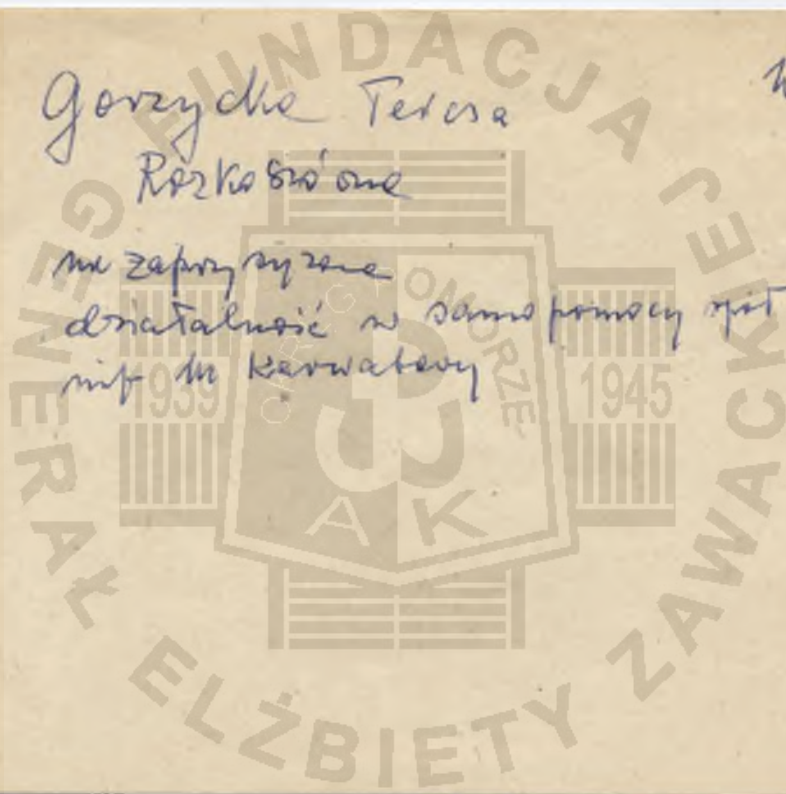 Gorzycka Teresa
Rózkoszówna
nie zaprzysiężona
działalność w samopomocy społ
inf. M Karwatowy
FUNDACJA JEJ
GENERAŁ ELŻBIETY ZAWACKIEJ
OKRĘG POMORZE
1939 1945
AK